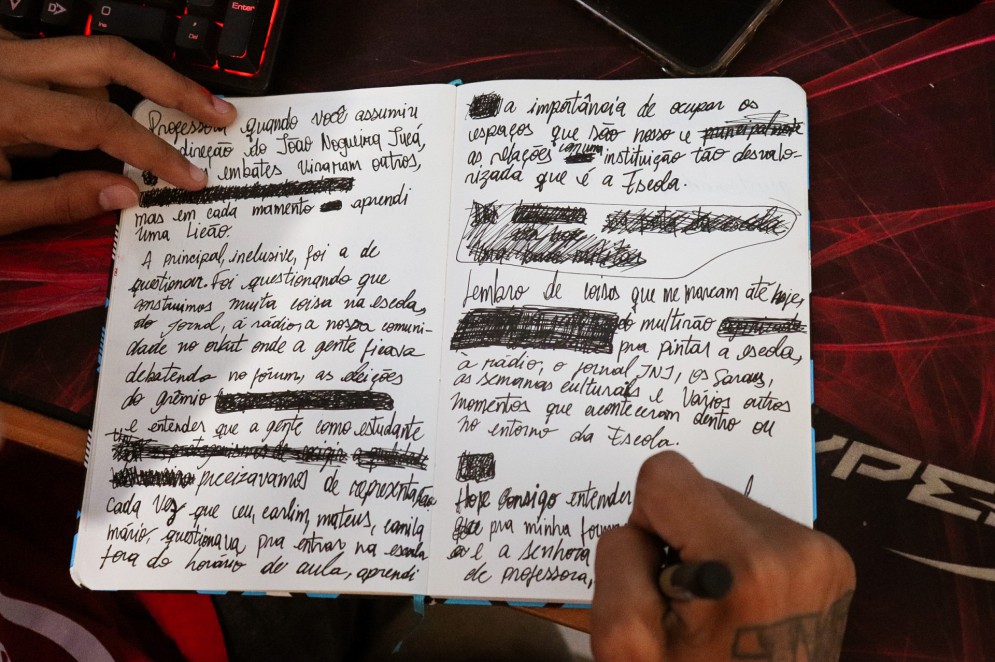 Professora quando você assumiu
direção do João Nogueira Jucá,
embates vinaram outros,
mas em cada momento aprendi
uma Lição.
A principal, inclusive, foi a de
questionar. Foi questionando que
construimos muita coisa na escola,
o jornal, a rádio, a nossa comuni-
dade no orkut onde a gente ficava
debatendo no fórum, as eleições
do grêmio
e entender que a gente como estudante
precizavamos de representação
cada vez que eu, carlim, mateus, camila
mário, questionava pra entrar na escola
fora do horario de aula, aprendi
a importância de ocupar os
espaços que são nosso e
as relações com uma instituição tão desvalo-
rizada que é a Escola.
Lembro de coisas que me marcam até hoje,
do multirão
pra pintar a escola,
à rádio, o jornal JNJ, os Saraus,
as semanas culturais e vários outros
momentos que aconteceram dentro ou
no entorno da Escola.
Hoje consigo entender
que pra minha
e a senhora
de professora,
Enter
YPE